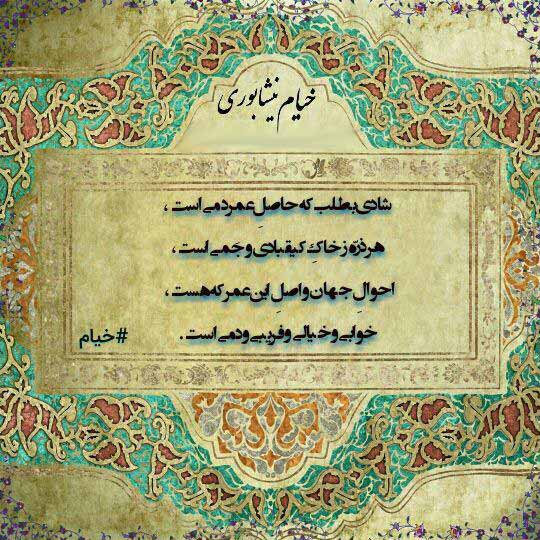 خیام نیشابوری
شادی بطلب که حاصلِ عمر دمی است ،
هر ذرّه ز خاکِ کیقبادی و جمی است ،
احوالِ جهان و اصلِ این عمر که هست ،
خوابی و خیالی و فریبی و دمی است .
#خیام